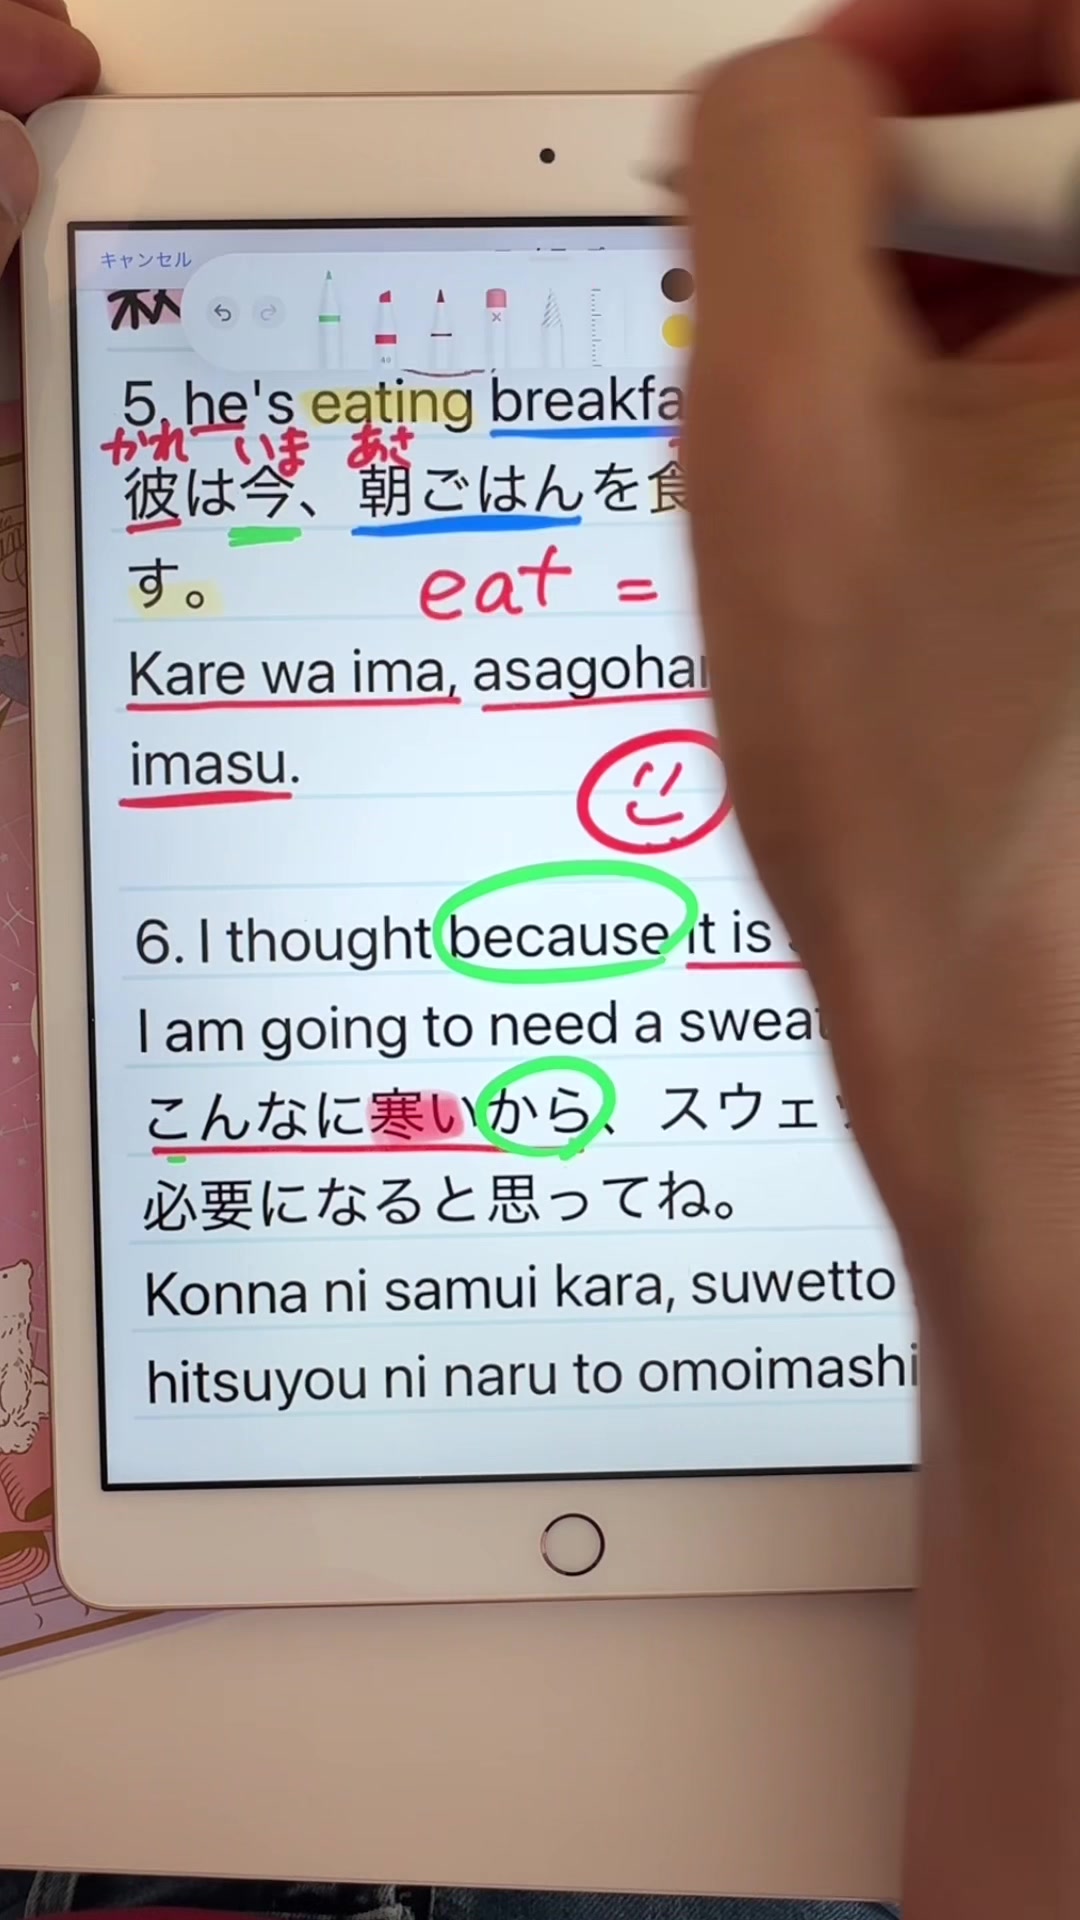 キャンセル
5. he's eating
かれ いま あさ
彼は今、朝ごはんを
す。
eat =
Kare wa ima,
imasu.
6. I thought because it is
I am going to need a
こんなに寒いから、
必要になると思ってね。
Konna ni samui kara, suwetto
hitsuyou ni naru to